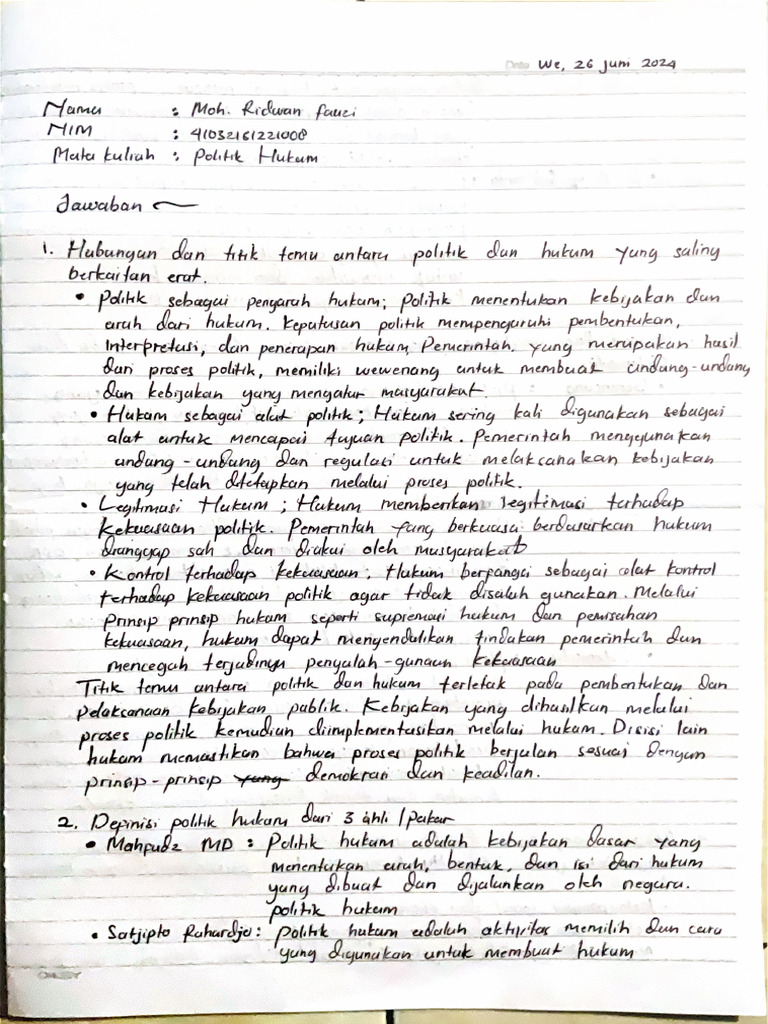 Date We, 26 Juni 2024
Nama : Moh. Ridwan Fauzi
NIM : 41032161221008
Mata kuliah : Politik Hukum
Jawaban
1. Hubungan dan titik temu antara politik dan hukum yang saling
berkaitan erat.
• Politik sebagai pengarah hukum; Politik menentukan kebijakan dan
arah dari hukum. Keputusan politik mempengaruhi pembentukan,
Interpretasi, dan penerapan hukum, Pemerintah. yang merupakan hasil
dari proses politik, memiliki wewenang untuk membuat undang-undang
dan kebijakan yang mengatur masyarakat.
• Hukum sebagai alat politik; Hukum sering kali digunakan sebagai
alat untuk mencapai tujuan politik. Pemerintah menggunakan
undang-undang dan regulasi untuk melaksanakan kebijakan
yang telah ditetapkan melalui proses politik.
• Legitimasi Hukum ; Hukum memberikan legitimasi terhadap
kekuasaan politik. Pemerintah yang berkuasa berdasarkan hukum
dianggap sah dan diakui oleh masyarakat
• Kontrol terhadap kekuasaan; Hukum berfungsi sebagai alat kontrol
terhadap kekuasaan politik agar tidak disalah gunakan. Melalui
prinsip prinsip hukum seperti supremasi hukum dan pemisahan
kekuasaan, hukum dapat mengendalikan tindakan pemerintah dan
mencegah terjadinya penyalah-gunaan kekuasaan
Titik temu antara politik dan hukum terletak pada pembentukan dan
pelaksanaan kebijakan publik. Kebijakan yang dihasilkan melalui
proses politik kemudian diimplementasikan melalui hukum. Disisi lain
hukum memastikan bahwa proses politik berjalan sesuai dengan
prinsip-prinsip yang demokrasi dan keadilan.
2. Definisi politik hukum dari 3 ahli/pakar
• Mahfudz MD : Politik hukum adalah kebijakan dasar yang
menentukan arah, bentuk, dan isi dari hukum
yang dibuat dan dijalankan oleh negara.
politik hukum
• Satjipto Rahardjo : Politik hukum adalah aktivitas memilih dan cara
yang digunakan untuk membuat hukum